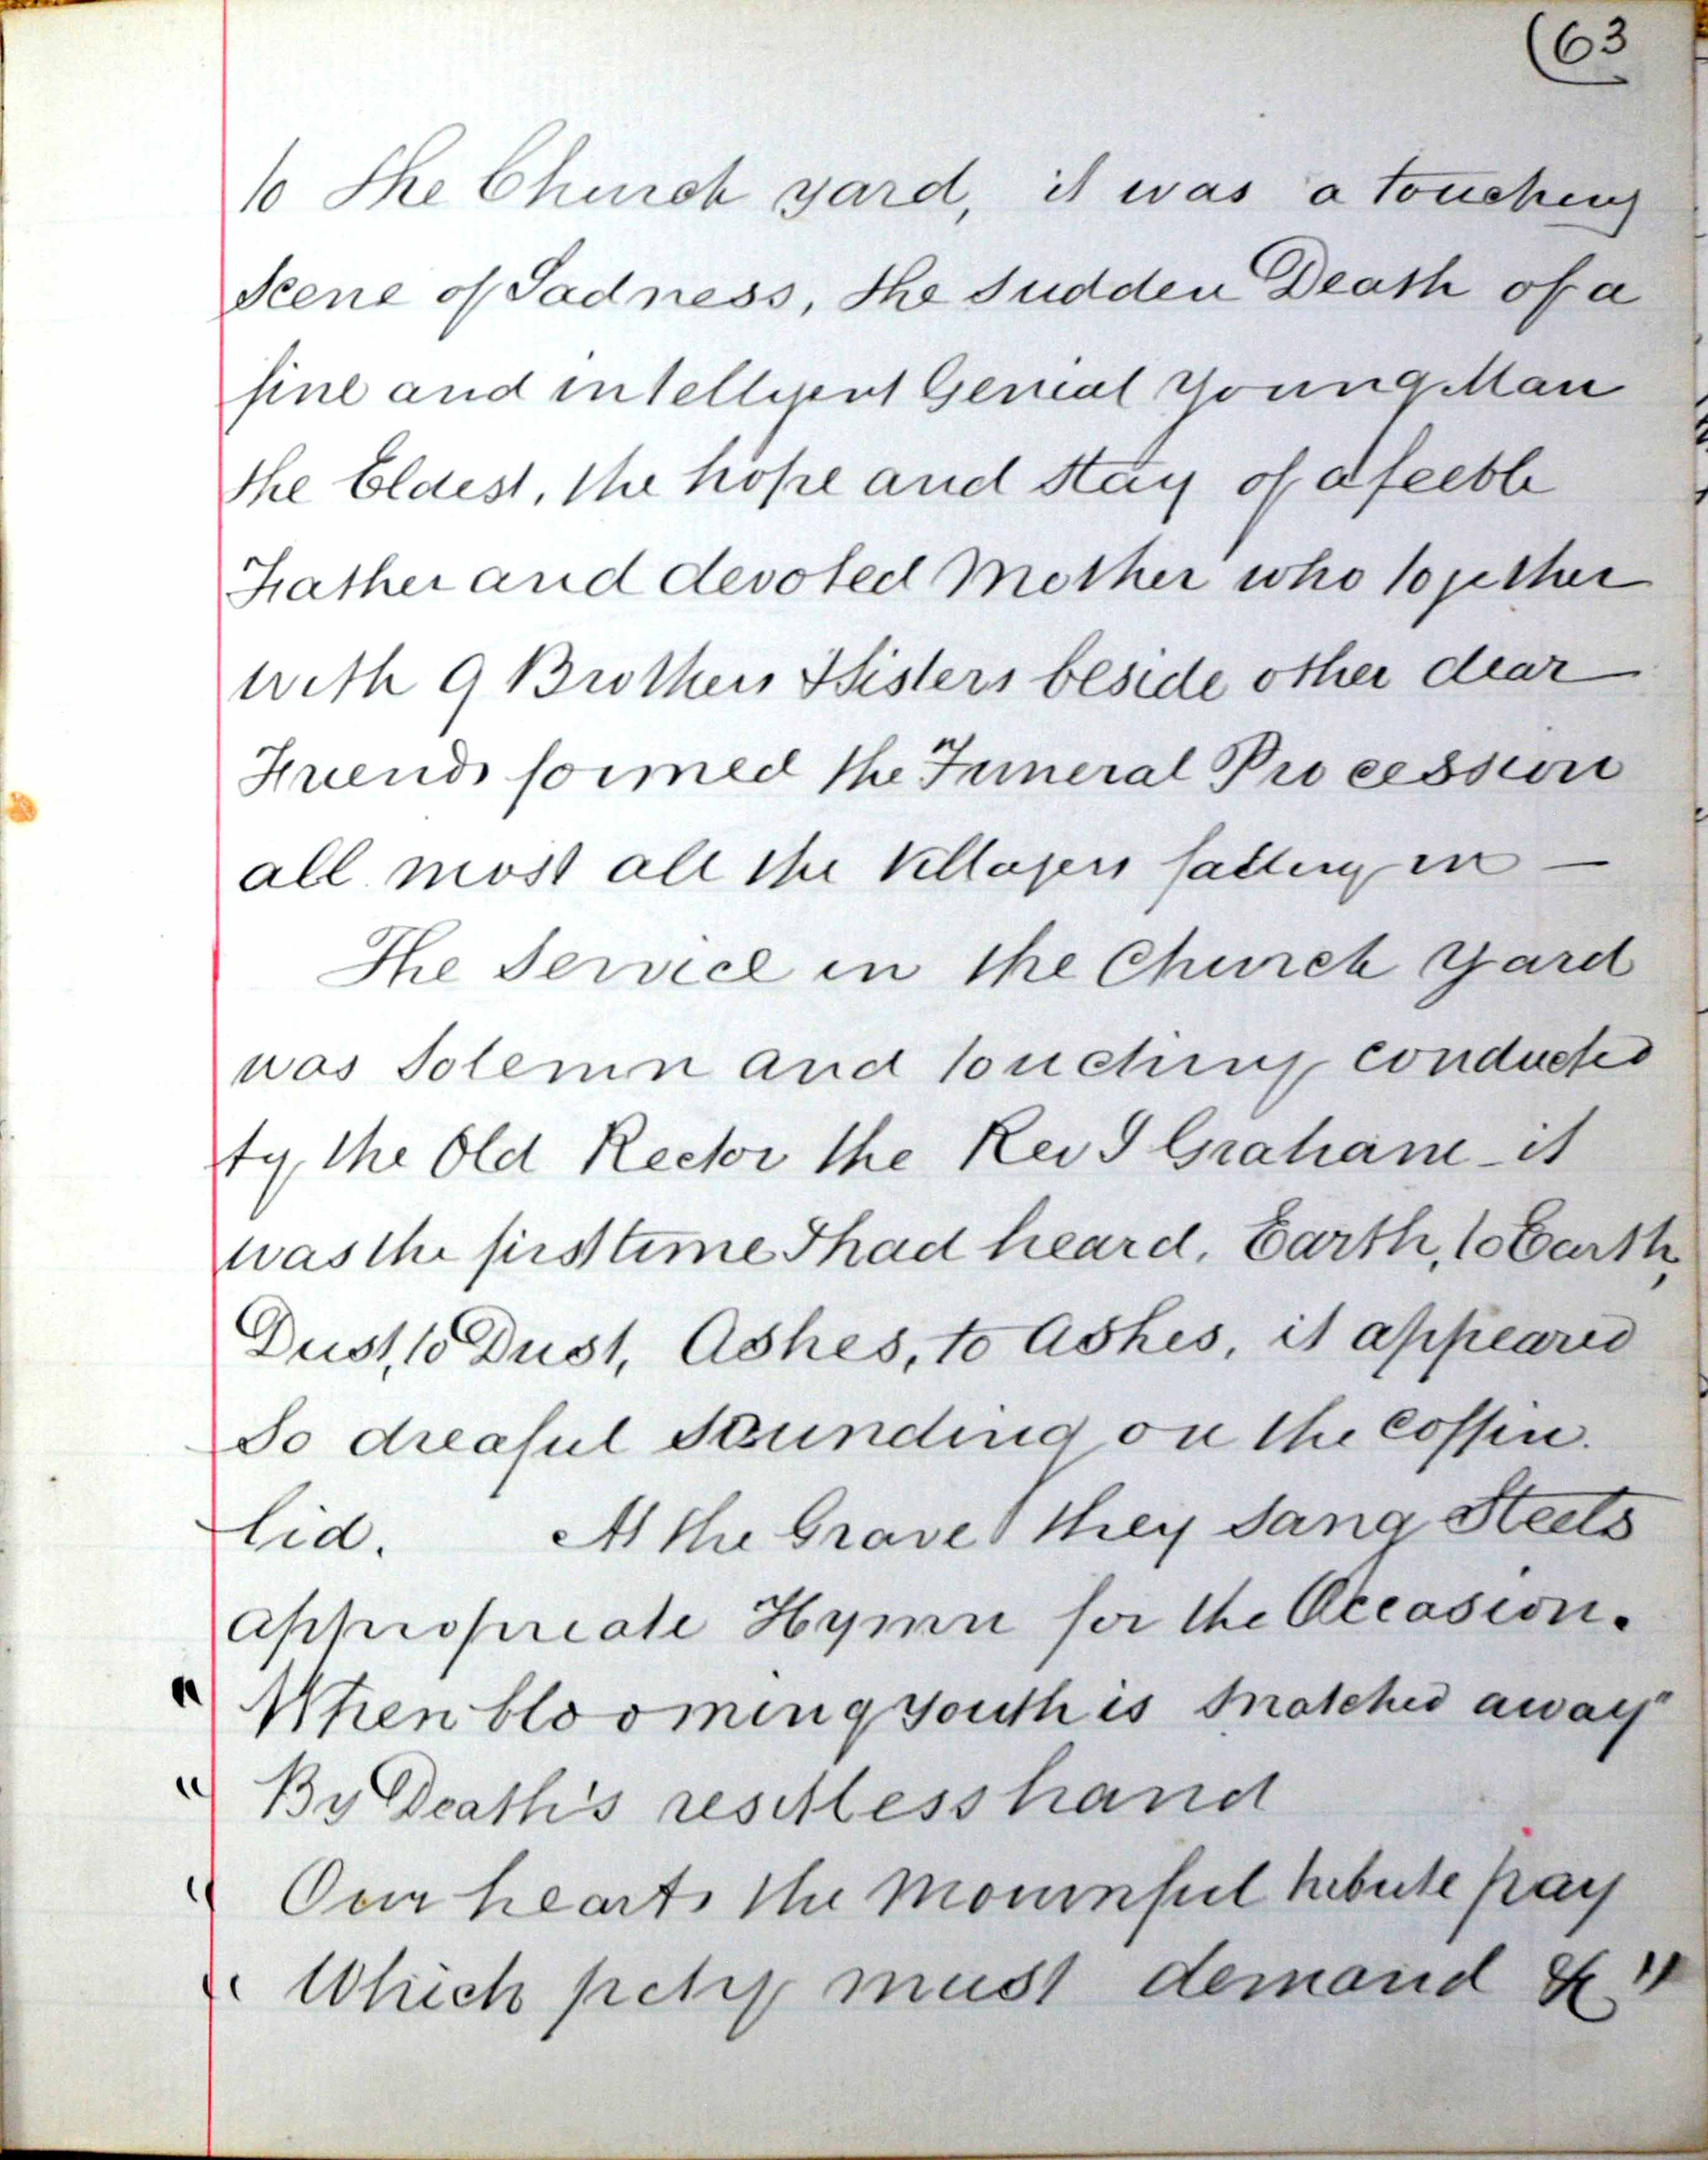 (63
to the Church yard, it was a touching
Scene of Sadness, the sudden Death of a
fine and intelligent Genial Young Man
the Eldest, the hope and stay of a feeble
Father and devoted Mother who together
with 9 Brothers & Sisters beside other dear
Friends formed the Funeral Procession
all most all the Villagers falling in —
The Service in the Church yard
was Solemn and touching conducted
by the Old Rector the Rev J Graham - it
was the first time I had heard, Earth, to Earth,
Dust, to Dust, Ashes, to Ashes, it appeared
So dreaful sounding on the Coffin.
lid. At the Grave they sang Steels
appropriate Hymn for the Occasion.
" When blooming youth is snatched away"
" By Death's resitless hand
" Our hearts the mournful tribute pay
" Which pety must demand &"